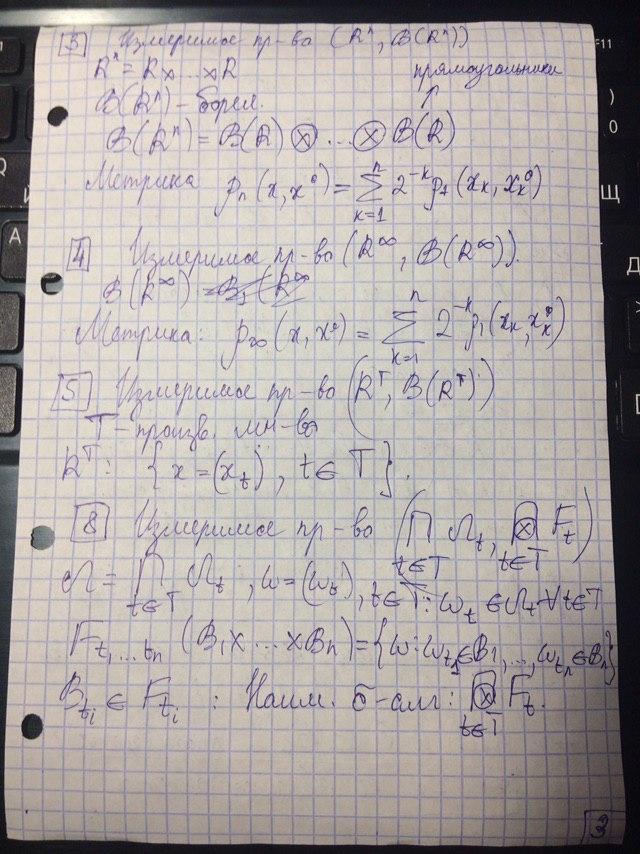 3 Измеримое пр-во (Rⁿ, B(Rⁿ))
Rⁿ = R x ... x R прямоугольники
B(Rⁿ) – борел. ↑
B(Rⁿ) = B(R) ⊗ ... ⊗ B(R)
Метрика ρₙ(x, x°) = ∑ₖ₌₁ⁿ 2⁻ᵏ ρ₁(xₖ, xₖ°)
4 Измеримое пр-во (R^∞, B(R^∞)).
B(R^∞)
Метрика: ρ_∞(x, x°) = ∑ₖ₌₁ⁿ 2⁻ᵏ ρ₁(xₖ, xₖ°)
5 Измеримое пр-во (R^T, B(R^T))
T – произв. мн-во
R^T: {x = (x_t), t ∈ T}.
8 Измеримое пр-во (∏_{t∈T} Ω_t, ⊗_{t∈T} F_t)
Ω = ∏_{t∈T} Ω_t, ω = (ω_t), t ∈ T: ω_t ∈ Ω_t ∀ t ∈ T
F_{t₁...tₙ} (B₁ x ... x Bₙ) = {ω: ω_{t₁} ∈ B₁, ..., ω_{tₙ} ∈ Bₙ}
B_{t_i} ∈ F_{t_i} : Наим. б-алг: ⊗_{t∈T} F_t.
3
F11
)
0
Q
Й
A
Щ